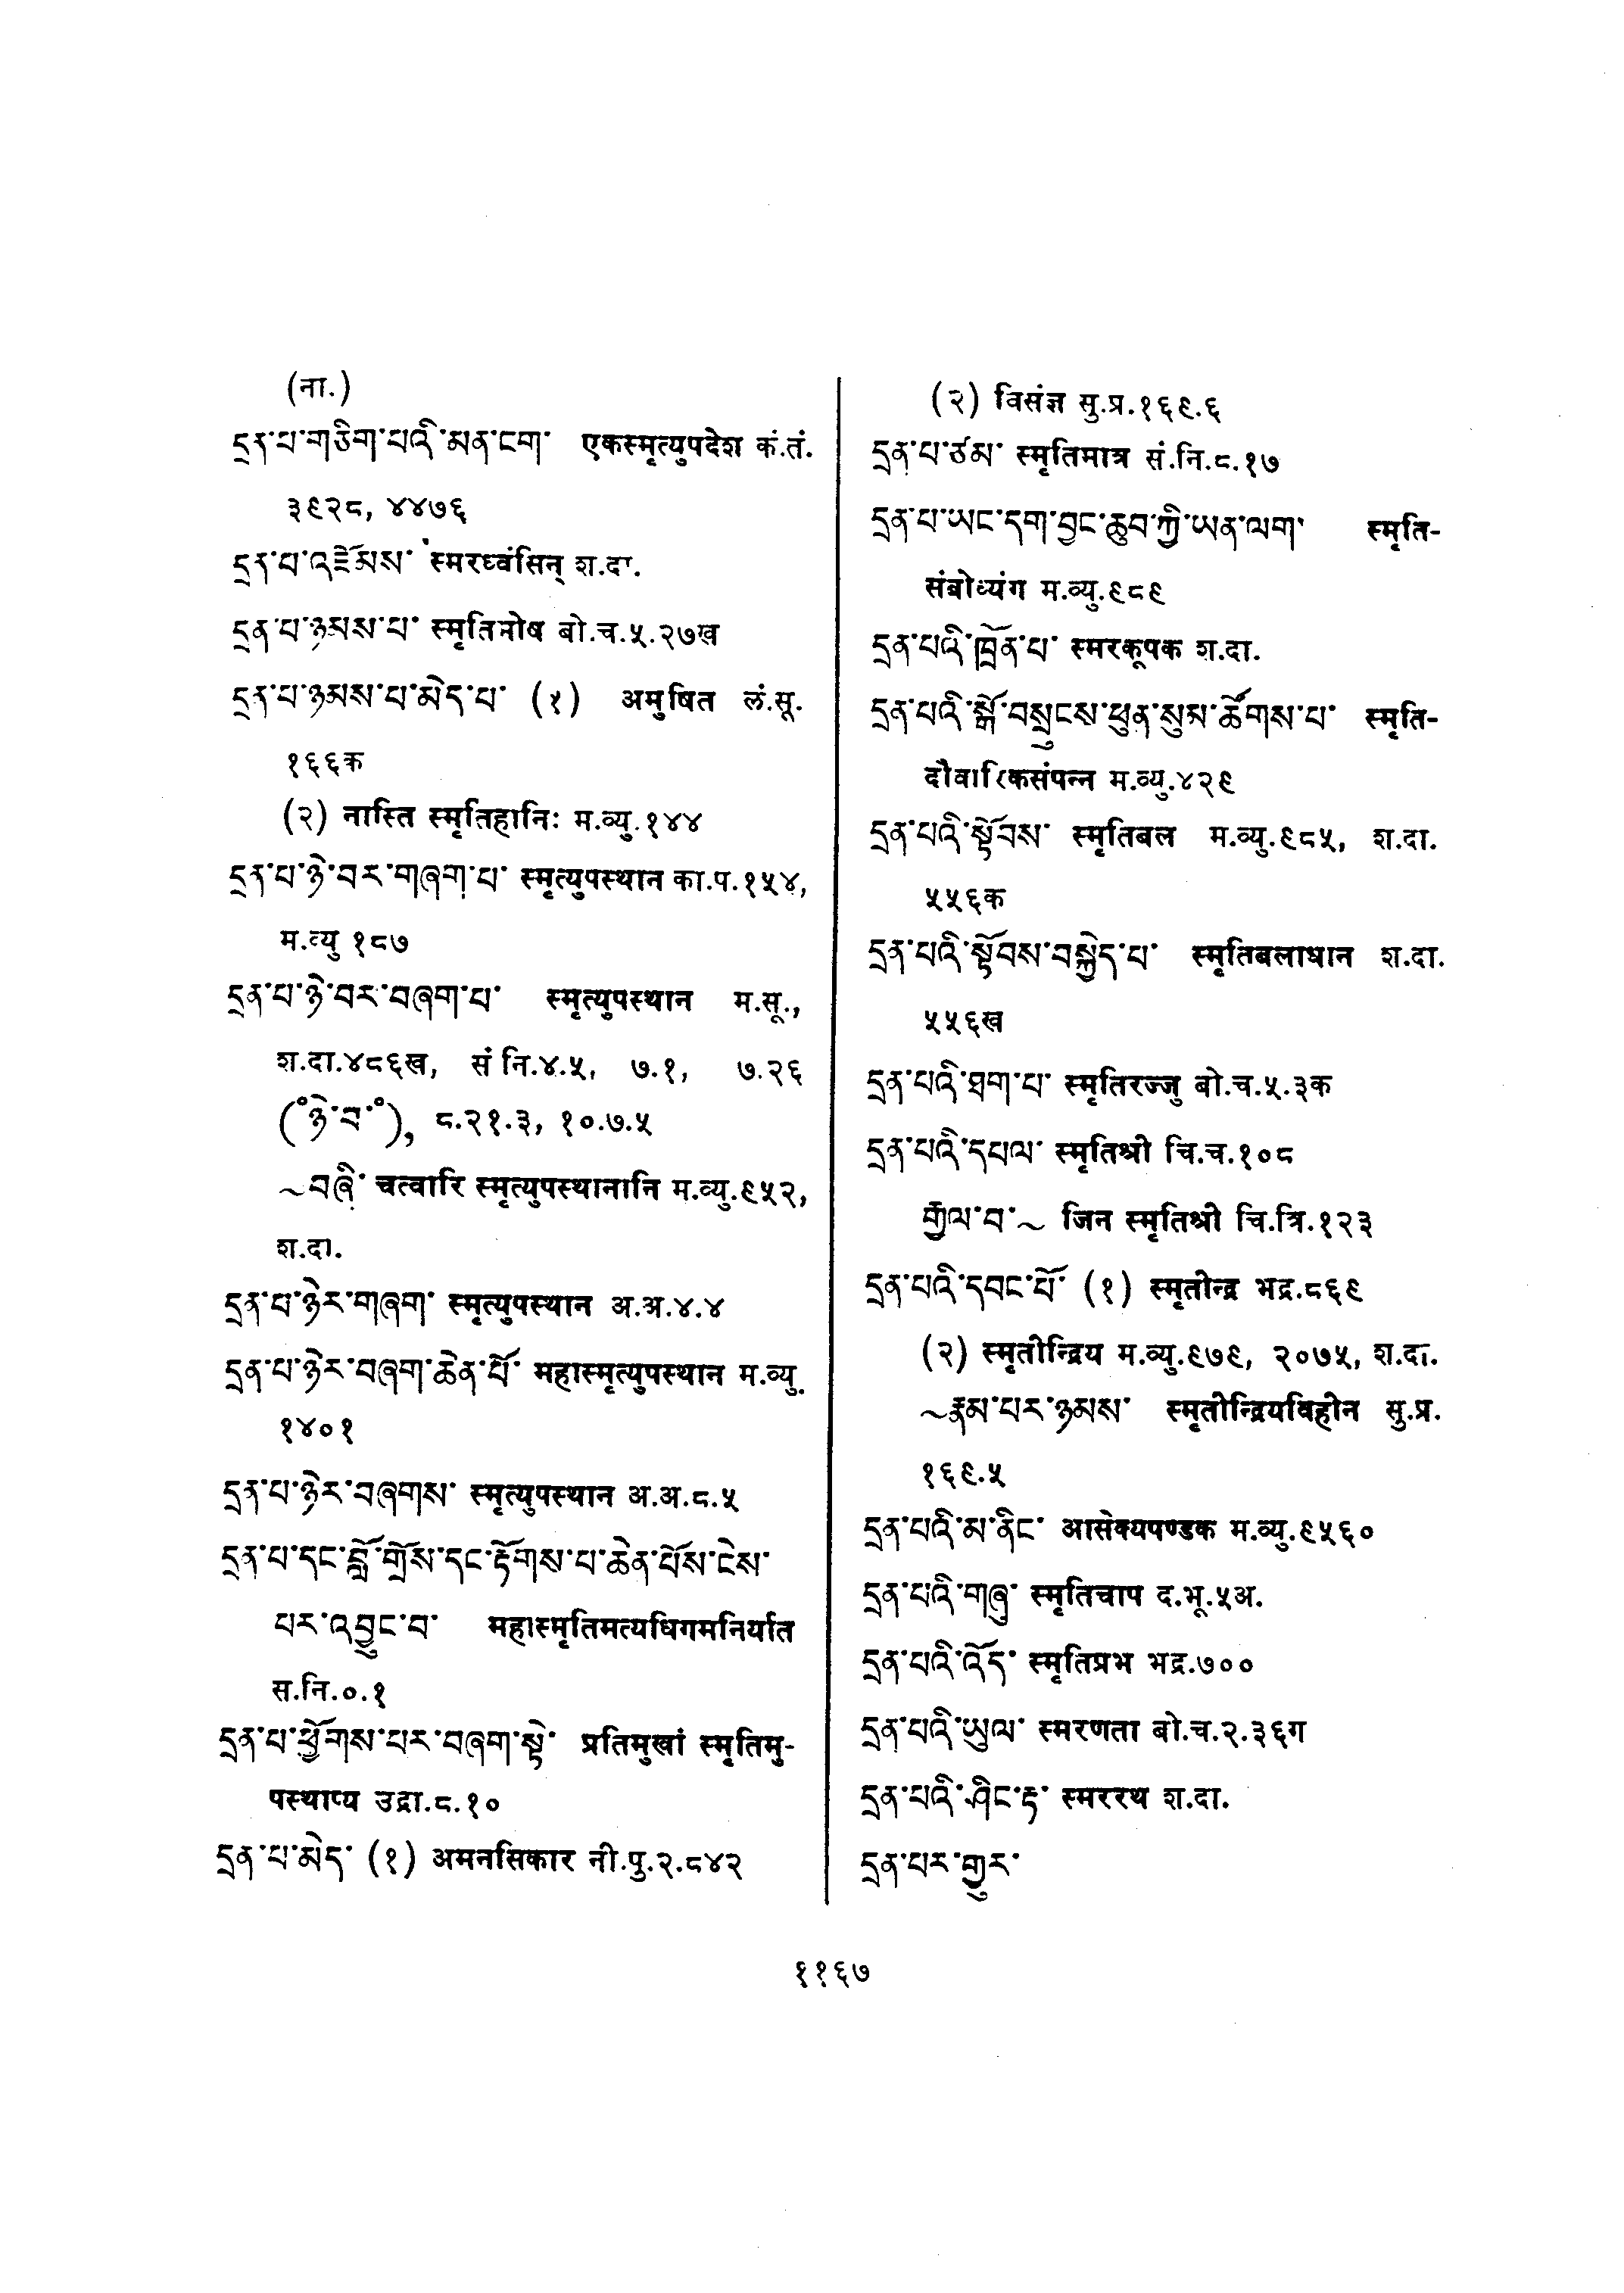 (ना.)
དྲན་པ་གཅིག་པའི་མན་ངག་ एकस्मृत्युपदेश कं.तं.
३९२८, ४४७६
དྲན་པ་འཇོམས་ स्मरध्वंसिन् श.दा.
དྲན་པ་ཉམས་པ་ स्मृतिमोष बो.च.५.२७ख
དྲན་པ་ཉམས་པ་མེད་པ་ (१) अमुषित लं.सू.
१६६क
(२) नास्ति स्मृतिहानिः म.व्यु.१४४
དྲན་པ་ཉེ་བར་གཞག་པ་ स्मृत्युपस्थान का.प.१५४,
म.व्यु १८७
དྲན་པ་ཉེ་བར་བཞག་པ་ स्मृत्युपस्थान म.सू.,
श.दा.४८६ख, सं नि.४.५, ७.१, ७.२६
(°ཉེ་བ་°), ८.२१.३, १०.७.५
~བཞི་ चत्वारि स्मृत्युपस्थानानि म.व्यु.९५२,
श.दा.
དྲན་པ་ཉེར་གཞག་ स्मृत्युपस्थान अ.अ.४.४
དྲན་པ་ཉེར་བཞག་ཆེན་པོ་ महास्मृत्युपस्थान म.व्यु.
१४०१
དྲན་པ་ཉེར་བཞགས་ स्मृत्युपस्थान अ.अ.८.५
དྲན་པ་དང་བློ་གྲོས་དང་རྟོགས་པ་ཆེན་པོས་ངེས་
པར་འབྱུང་བ་ महास्मृतिमत्यधिगमनिर्यात
स.नि.०.१
དྲན་པ་ཕྱོགས་པར་བཞག་སྟེ་ प्रतिमुखां स्मृतिमु-
पस्थाप्य उद्रा.८.१०
དྲན་པ་མེད་ (१) अमनसिकार नी.पु.२.८४२
(२) विसंज्ञ सु.प्र.१६९.६
དྲན་པ་ཙམ་ स्मृतिमात्र सं.नि.८.१७
དྲན་པ་ཡང་དག་བྱང་ཆུབ་ཀྱི་ཡན་ལག་ स्मृति-
संबोध्यंग म.व्यु.९८९
དྲན་པའི་ཁྲོན་པ་ स्मरकूपक श.दा.
དྲན་པའི་སྒོ་བསྲུངས་ཕུན་སུམ་ཚོགས་པ་ स्मृति-
दौवारिकसंपन्न म.व्यु.४२९
དྲན་པའི་སྟོབས་ स्मृतिबल म.व्यु.९८५, श.दा.
५५६क
དྲན་པའི་སྟོབས་བསྐྱེད་པ་ स्मृतिबलाधान श.दा.
५५६ख
དྲན་པའི་ཐག་པ་ स्मृतिरज्जु बो.च.५.३क
དྲན་པའི་དཔལ་ स्मृतिश्री चि.च.१०८
རྒྱལ་བ་~ जिन स्मृतिश्री चि.त्रि.१२३
དྲན་པའི་དབང་པོ་ (१) स्मृतीन्द्र भद्र.८६९
(२) स्मृतीन्द्रिय म.व्यु.९७९, २०७५, श.दा.
~རྣམ་པར་ཉམས་ स्मृतीन्द्रियविहीन सु.प्र.
१६९.५
དྲན་པའི་མ་ནིང་ आसेक्यपण्डक म.व्यु.९५६०
དྲན་པའི་གཞུ་ स्मृतिचाप द.भू.५अ.
དྲན་པའི་འོད་ स्मृतिप्रभ भद्र.७००
དྲན་པའི་ཡུལ་ स्मरणता बो.च.२.३६ग
དྲན་པའི་ཤིང་རྟ་ स्मररथ श.दा.
དྲན་པར་གྱུར་
११६७